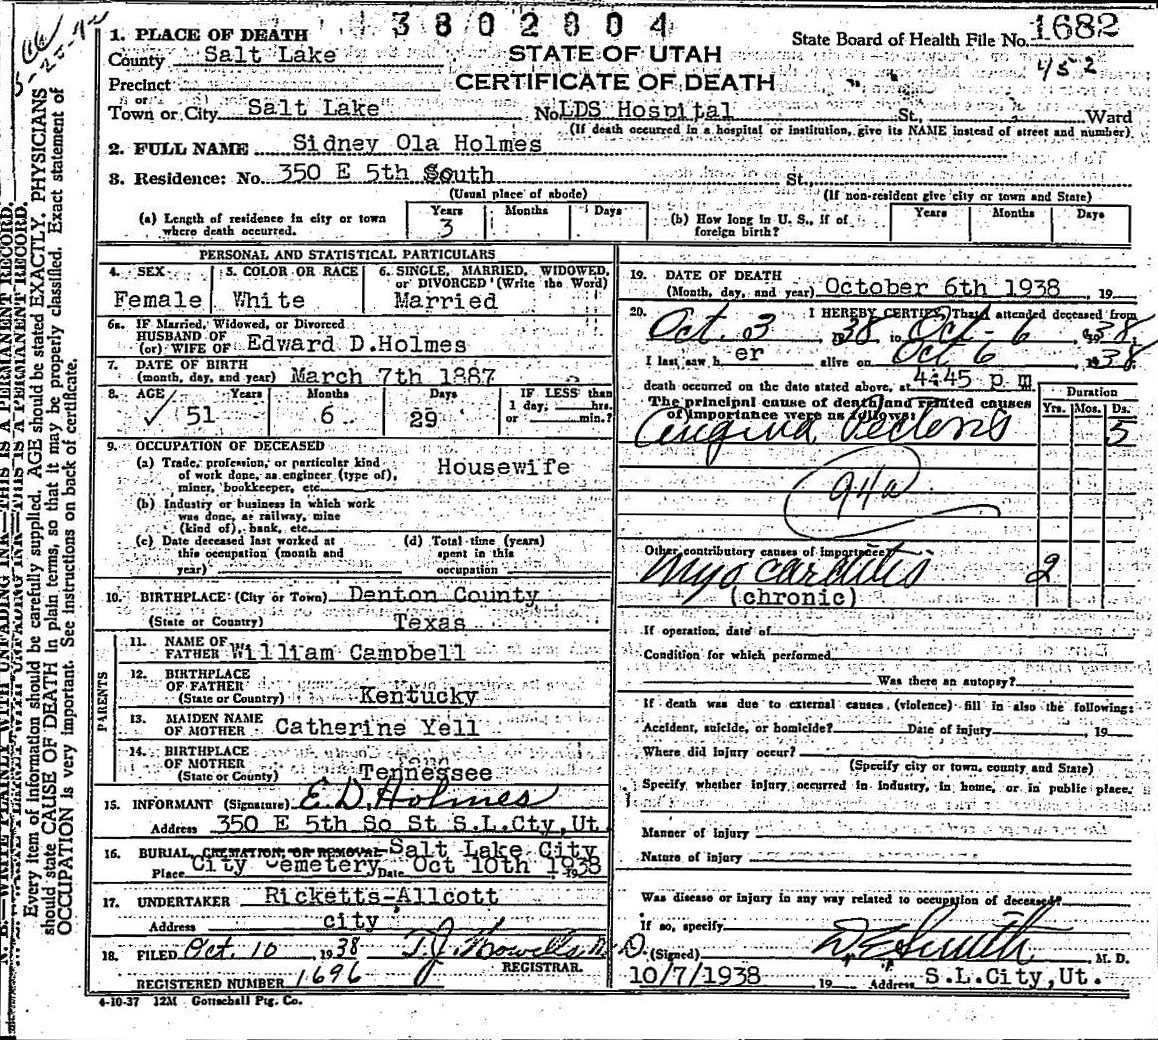 3802004
1. PLACE OF DEATH
State Board of Health File No. 1682
County Salt Lake
STATE OF UTAH
452
Precinct
CERTIFICATE OF DEATH
or
Town or City Salt Lake No. LDS Hospital St., Ward
(If death occurred in a hospital or institution, give its NAME instead of street and number)
2. FULL NAME Sidney Ola Holmes
3. Residence: No. 350 E 5th South St.,
(Usual place of abode) (If non-resident give city or town and State)
(a) Length of residence in city or town where death occurred. Years 3 Months Days
(b) How long in U. S., if of foreign birth? Years Months Days
PERSONAL AND STATISTICAL PARTICULARS
4. SEX Female
5. COLOR OR RACE White
6. SINGLE, MARRIED, WIDOWED, or DIVORCED (Write the Word) Married
6a. IF Married, Widowed, or Divorced
HUSBAND OF
(or) WIFE OF Edward D.Holmes
7. DATE OF BIRTH
(month, day, and year) March 7th 1887
8. AGE Years 51 Months 6 Days 29 IF LESS than 1 day, hrs. or min.?
9. OCCUPATION OF DECEASED
(a) Trade, profession, or particular kind of work done, as engineer (type of), miner, bookkeeper, etc. Housewife
(b) Industry or business in which work was done, as railway, mine (kind of), bank, etc.
(c) Date deceased last worked at this occupation (month and year)
(d) Total time (years) spent in this occupation
10. BIRTHPLACE (City or Town) Denton County
(State or Country) Texas
PARENTS
11. NAME OF FATHER William Campbell
12. BIRTHPLACE OF FATHER
(State or Country) Kentucky
13. MAIDEN NAME OF MOTHER Catherine Yell
14. BIRTHPLACE OF MOTHER
(State or Country) Tennessee
15. INFORMANT (Signature) E.D. Holmes
Address 350 E 5th So St S.L.Cty,Ut.
16. BURIAL, CREMATION, OR REMOVAL Salt Lake City
Place City Cemetery Date Oct 10th 1938
17. UNDERTAKER Ricketts-Allcott
Address city
18. FILED Oct. 10 1938 T.J. Howells M.D.
REGISTRAR.
REGISTERED NUMBER 1696
4-10-37 12M Gottschall Ptg. Co.
19. DATE OF DEATH
(Month, day, and year) October 6th 1938, 19
20. I HEREBY CERTIFY, That I attended deceased from
Oct. 3 1938 to Oct - 6 1938.
I last saw her alive on Oct 6 1938
death occurred on the date stated above, at 4:45 p m
The principal cause of death and related causes of importance were as follows:
Duration
Yrs. Mos. Ds.
Angina Pectoris 5
94a
Other contributory causes of importance:
Myocarditis 2
(chronic)
If operation, date of
Condition for which performed
Was there an autopsy?
If death was due to external causes (violence) fill in also the following:
Accident, suicide, or homicide? Date of injury , 19
Where did injury occur?
(Specify city or town, county and State)
Specify whether injury occurred in industry, in home, or in public place.
Manner of injury
Nature of injury
Was disease or injury in any way related to occupation of deceased?
If so, specify
(Signed) Smith M. D.
10/7/1938 19 Address S.L.City,Ut.
WRITE PLAINLY WITH UNFADING INK—THIS IS A PERMANENT RECORD.
Every item of information should be carefully supplied. AGE should be stated EXACTLY. PHYSICIANS
should state CAUSE OF DEATH in plain terms, so that it may be properly classified. Exact statement of
OCCUPATION is very important. See instructions on back of certificate.